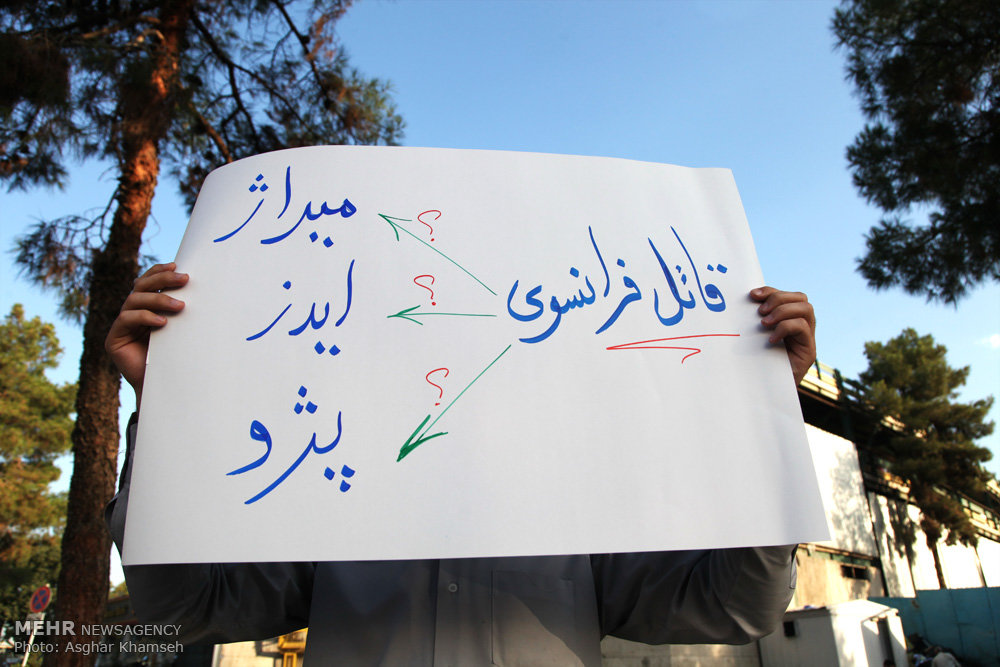 قاتل فرانسوی
؟ میراژ
؟ ایدز
؟ پژو
MEHR NEWSAGENCY
Photo: Asghar Khamseh